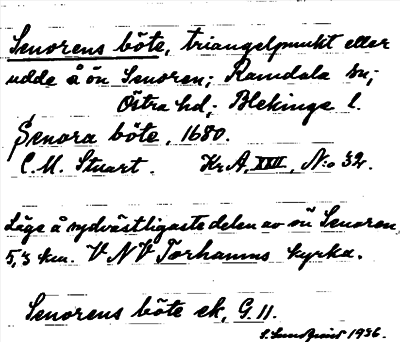 Senorens böte, triangelpunkt eller
udde å ön Senoren; Ramdala sn;
Östra hd; Blekinge l.
Senora böte, 1680.
C.M. Stuart. Kr.A, XXII, No 32.
Läge å sydvästligaste delen av ön Senoren,
5,3 km. V N V Torhamns kyrka.
Senorens böte ek, G.11.
1936.